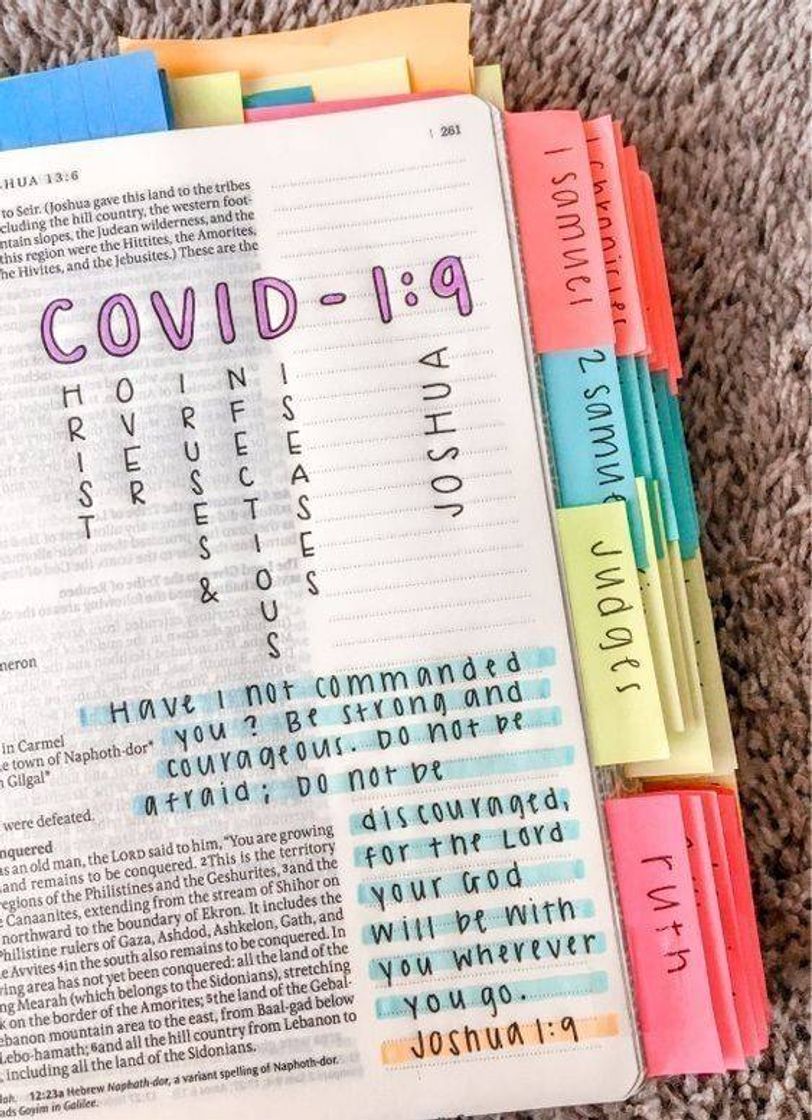 261
HUA 13:6
to Seir. (Joshua gave this land to the tribes
cluding the hill country, the western foot-
ntain slopes, the Judean wilderness, and the
this region were the Hittites, the Amorites,
he Hivites, and the Jebusites.) These are the
COVID-1:9
HRIST
OVER
IRUSES &
NFECTIOUS
ISEASES
JOSHUA
meron
Have I not commanded
you? Be strong and
courageous. Do not be
afraid; Do not be
discouraged,
for the Lord
your God
will be with
you wherever
you go.
Joshua 1:9
in Carmel
e town of Naphoth-dor*
n Gilgal*
were defeated.
nquered
as an old man, the LORD said to him, "You are growing
and remains to be conquered. 2This is the territory
regions of the Philistines and the Geshurites, 3and the
e Canaanites, extending from the stream of Shihor on
northward to the boundary of Ekron. It includes the
Philistine rulers of Gaza, Ashdod, Ashkelon, Gath, and
e Avvites 4in the south also remains to be conquered. In
ring area has not yet been conquered: all the land of the
ng Mearah (which belongs to the Sidonians), stretching
k on the border of the Amorites; 5the land of the Gebal-
ebanon mountain area to the east, from Baal-gad below
Lebo-hamath; 6and all the hill country from Lebanon to
, including all the land of the Sidonians.
lah. 12:23a Hebrew Naphath-dor, a variant spelling of Naphoth-dor.
ads Goyim in Galilee.
1 samuel
1 chronicles
2 samue
Judges
ruth